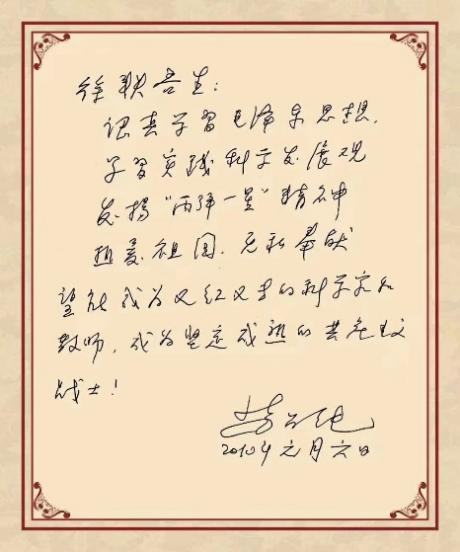 徐 吾生：
认真学习毛泽东思想，
学习实践科学发展观
发扬“两弹一星”精神
热爱祖国，无私奉献
望能成为又红又专的科学家和
教师，成为坚定成熟的共产主义
战士！
2010年元月六日